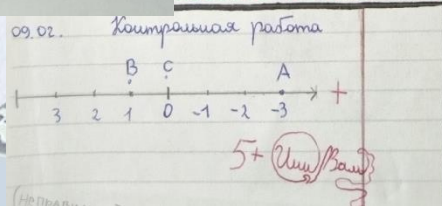 09.02. Контрольная работа
B C A
3 2 1 0 -1 -2 -3 +
5+